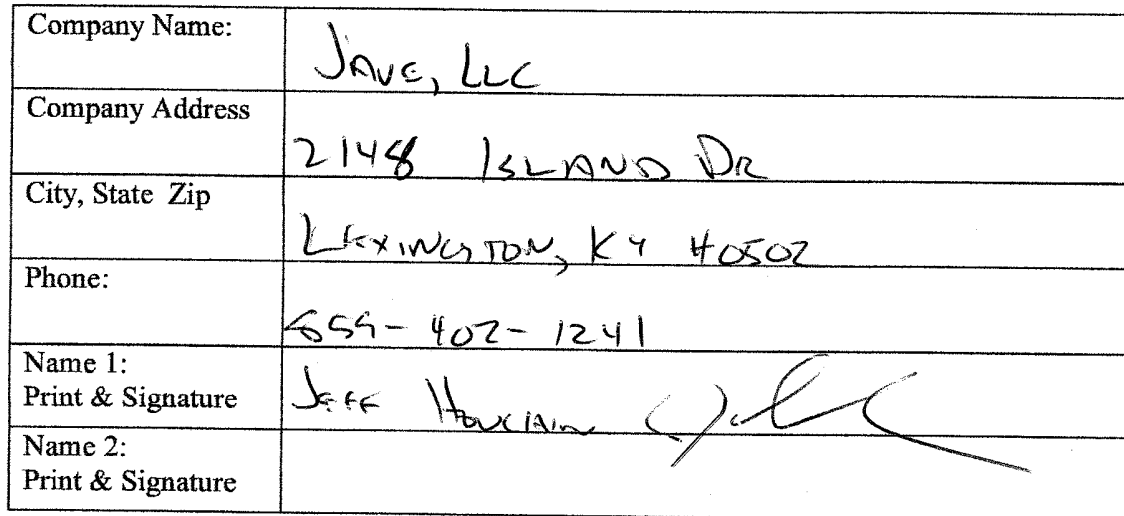 Company Name:
JAVE, LLC
Company Address
2148 ISLAND DR
City, State Zip
LEXINGTON, KY 40502
Phone:
859-402-1241
Name 1:
Print & Signature
JEFF
Name 2:
Print & Signature